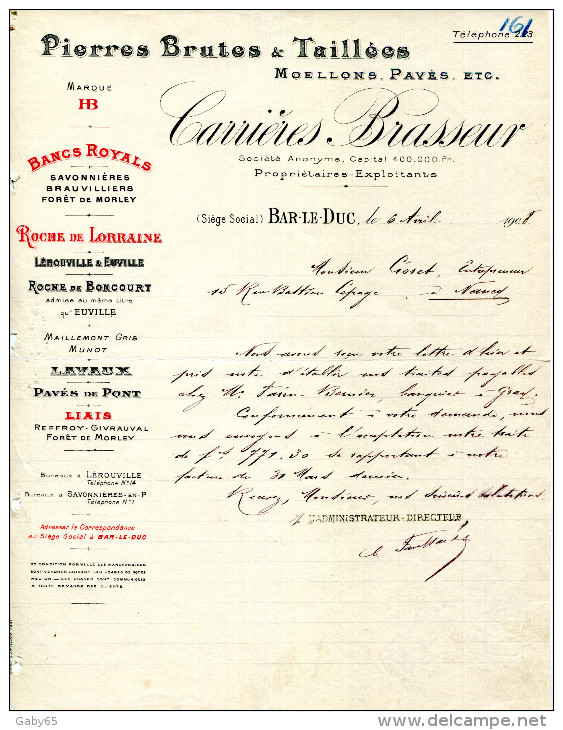 161
Téléphone 223
Pierres Brutes & Taillées
Moellons, Pavés, etc.
Carrières Brasseur
Société Anonyme, Capital 400.000 fr.
Propriétaires-Exploitants
Marque
HB
Bancs Royals
Savonnières
Brauvilliers
Forêt de Morley
Roche de Lorraine
Lérouville & Euville
Roche de Boncourt
admise au même titre
qu'Euville
Maillemont Gris
Munot
Lavaux
Pavés de Pont
Liais
Reffroy-Givrauval
Forêt de Morley
Bureaux à Lérouville
Téléphone Nº 14
Bureaux à Savonnières-en-P
Téléphone Nº 1
Adresser la Correspondance
au Siège Social à Bar-le-Duc
(Siège Social) Bar-le-Duc, le 6 Avril 1908
Monsieur Entrepreneur
15 Rue Lepage à Nancy
Nous avons reçu votre lettre d'hier et
pris note d'établir nos traites payables
chez M. banquier à
Conformément à votre demande, nous
vous envoyons à l'acceptation notre traite
de frs 771.30 se rapportant à notre
facture du 30 Mars dernier.
Recevez, Monsieur, nos sincères salutations
L'ADMINISTRATEUR-DIRECTEUR
Gaby65
www.delcampe.net